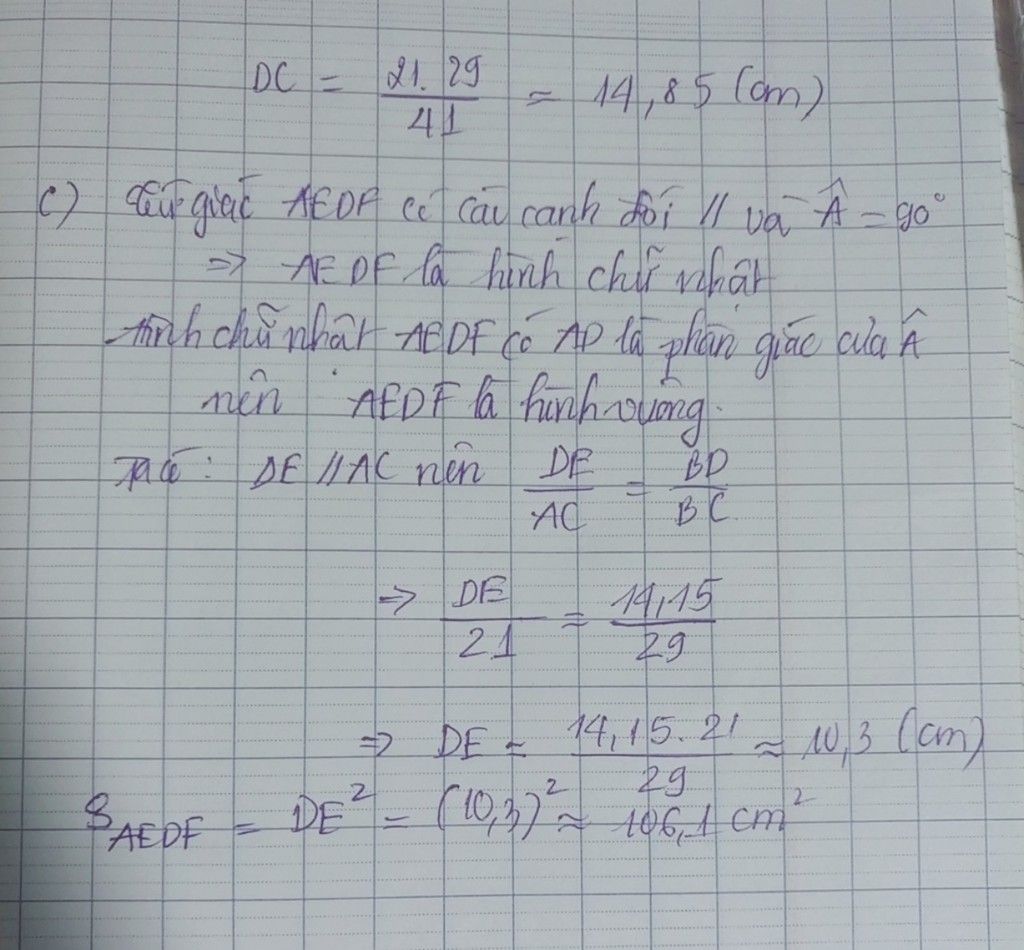 DC = 21.29 / 41 = 14,85 (cm)
c) Tứ giác AEDF có các cạnh đối // và Â = 90°
=> AEDF là hình chữ nhật
Hình chữ nhật AEDF có AD là phân giác của Â
nên AEDF là hình vuông.
Ta có: DE // AC nên DE / AC = BD / BC
=> DE / 21 = 14,15 / 29
=> DE = 14,15.21 / 29 ≈ 10,3 (cm)
S AEDF = DE² = (10,3)² ≈ 106,1 cm²